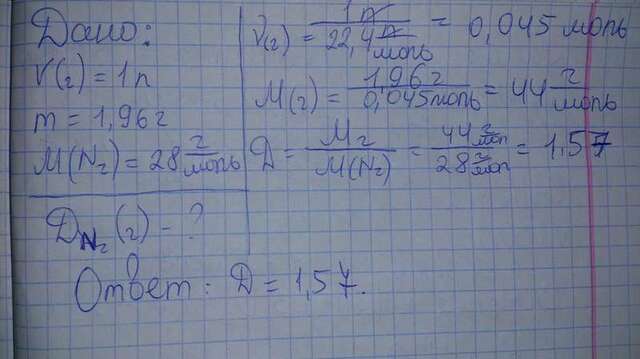 Дано:
V(г) = 1л
m = 1,96г
M(N₂) = 28 г/моль
D N₂ (г) - ?
ν(г) = 1л / 22,4 л/моль = 0,045 моль
M(г) = 1,96г / 0,045моль = 44 г/моль
D = Mг / M(N₂) = 44 г/мол / 28 г/мол = 1,57
Ответ: D = 1,57.